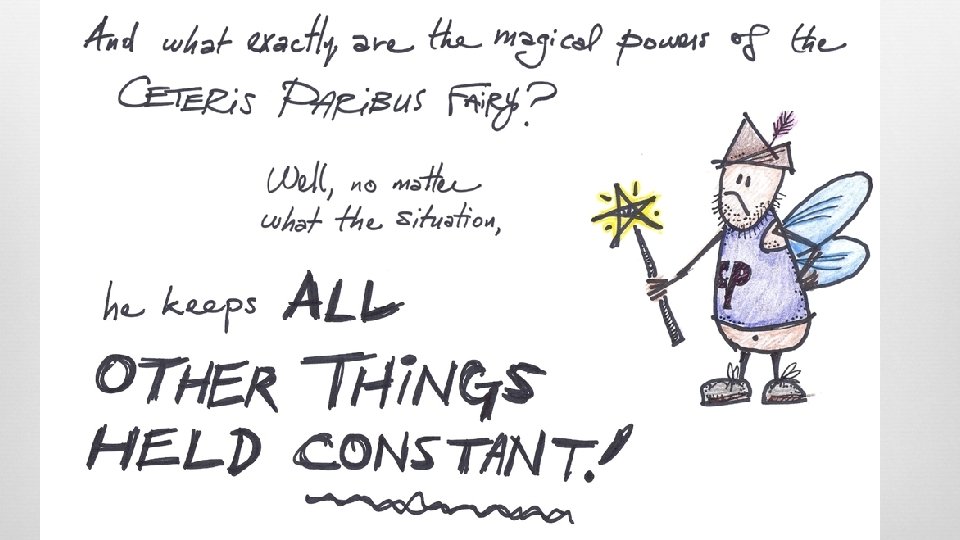 And what exactly are the magical powers of the
CETERiS PARiBUS FAiRY?
Well, no matter
what the situation,
he keeps ALL
OTHER THiNGS
HELD CONSTANT!
CP